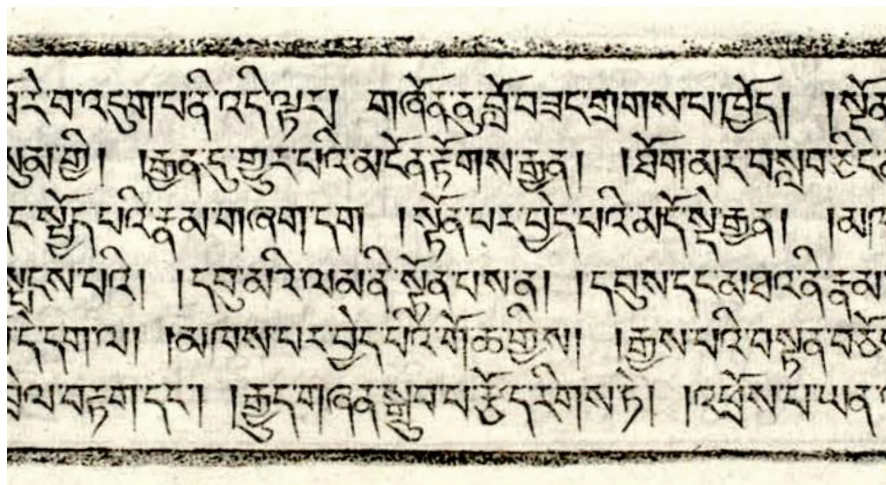 རེ་བ་འདུག་པ་ནི་འདི་ལྟར། གཞོན་ནུ་བློ་བཟང་གྲགས་པ་ཁྱོད། །སྔོན
གསུམ་གྱི། །རྒྱན་དུ་གྱུར་པའི་མངོན་རྟོགས་རྒྱན། །ཐོག་མར་བསླབ་ཅིང
དང་སྤྱོད་པའི་རྣམ་གཞག་དག །སྟོན་པར་བྱེད་པའི་མདོ་སྡེ་རྒྱན། །མཁ
སྤངས་པའི། །དབུ་མའི་ལམ་ནི་སྟོན་པ་སན། །དབུས་དང་མཐའ་ནི་རྣམ
དེ་དག་ལ། །མཁས་པར་བྱེད་པའི་གོ་ཆ་གྱིས། །རྒྱས་པའི་བསྟན་བཅོས
བྲེལ་བརྟག་དང་། །རྒྱུད་གཞན་སྒྲུབ་པ་རྩོད་རིགས་ཏེ། །འཕྲོས་པ་ཡན